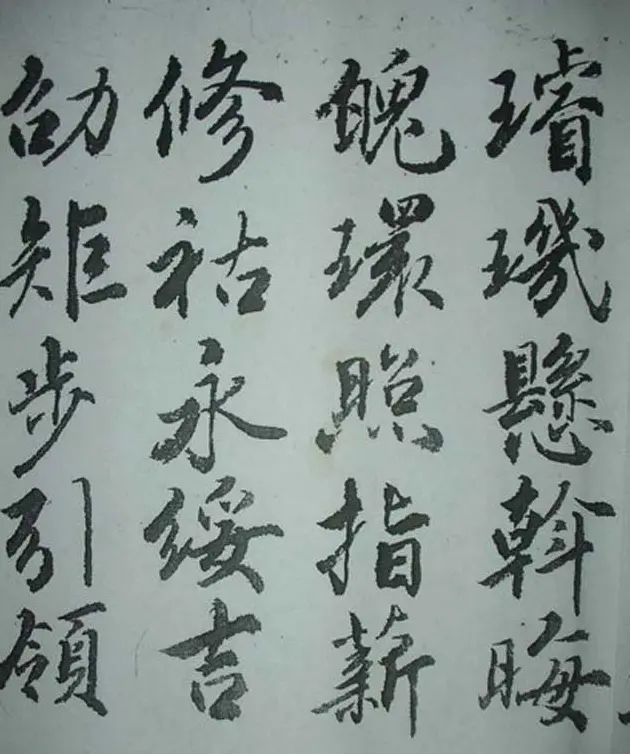 璿璣懸斡晦
魄環照指薪
修祜永綏吉
劭矩步引領